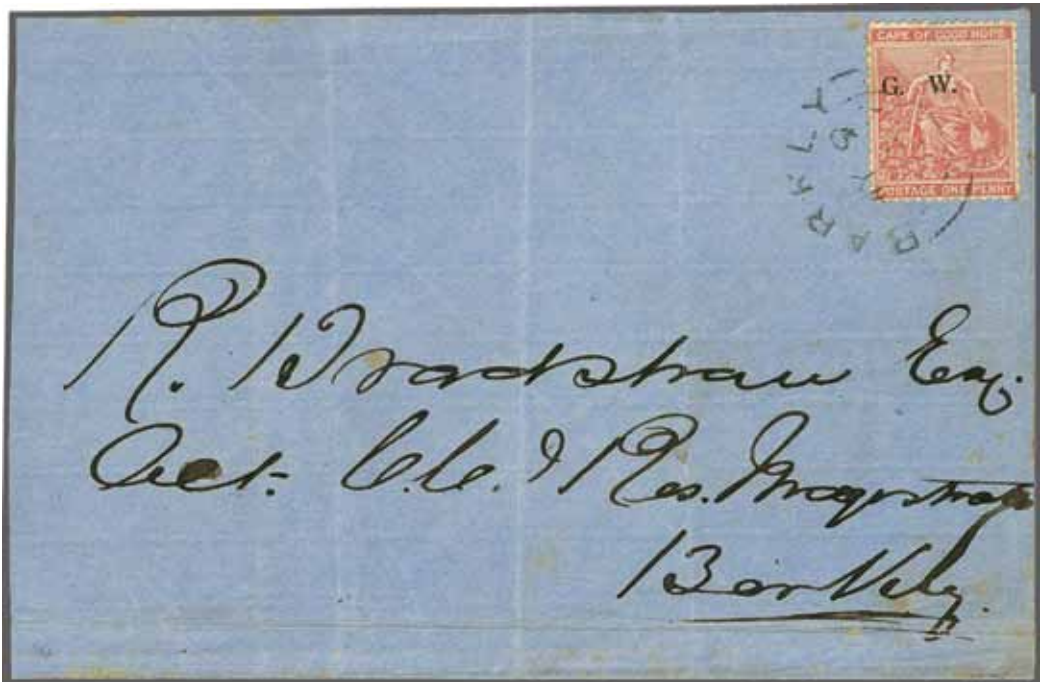 CAPE OF GOOD HOPE
G. W.
POSTAGE ONE PENNY
BARKLY
R. Bradshaw Esq.
Act. C.C. & Res. Magistrate
Barkly.